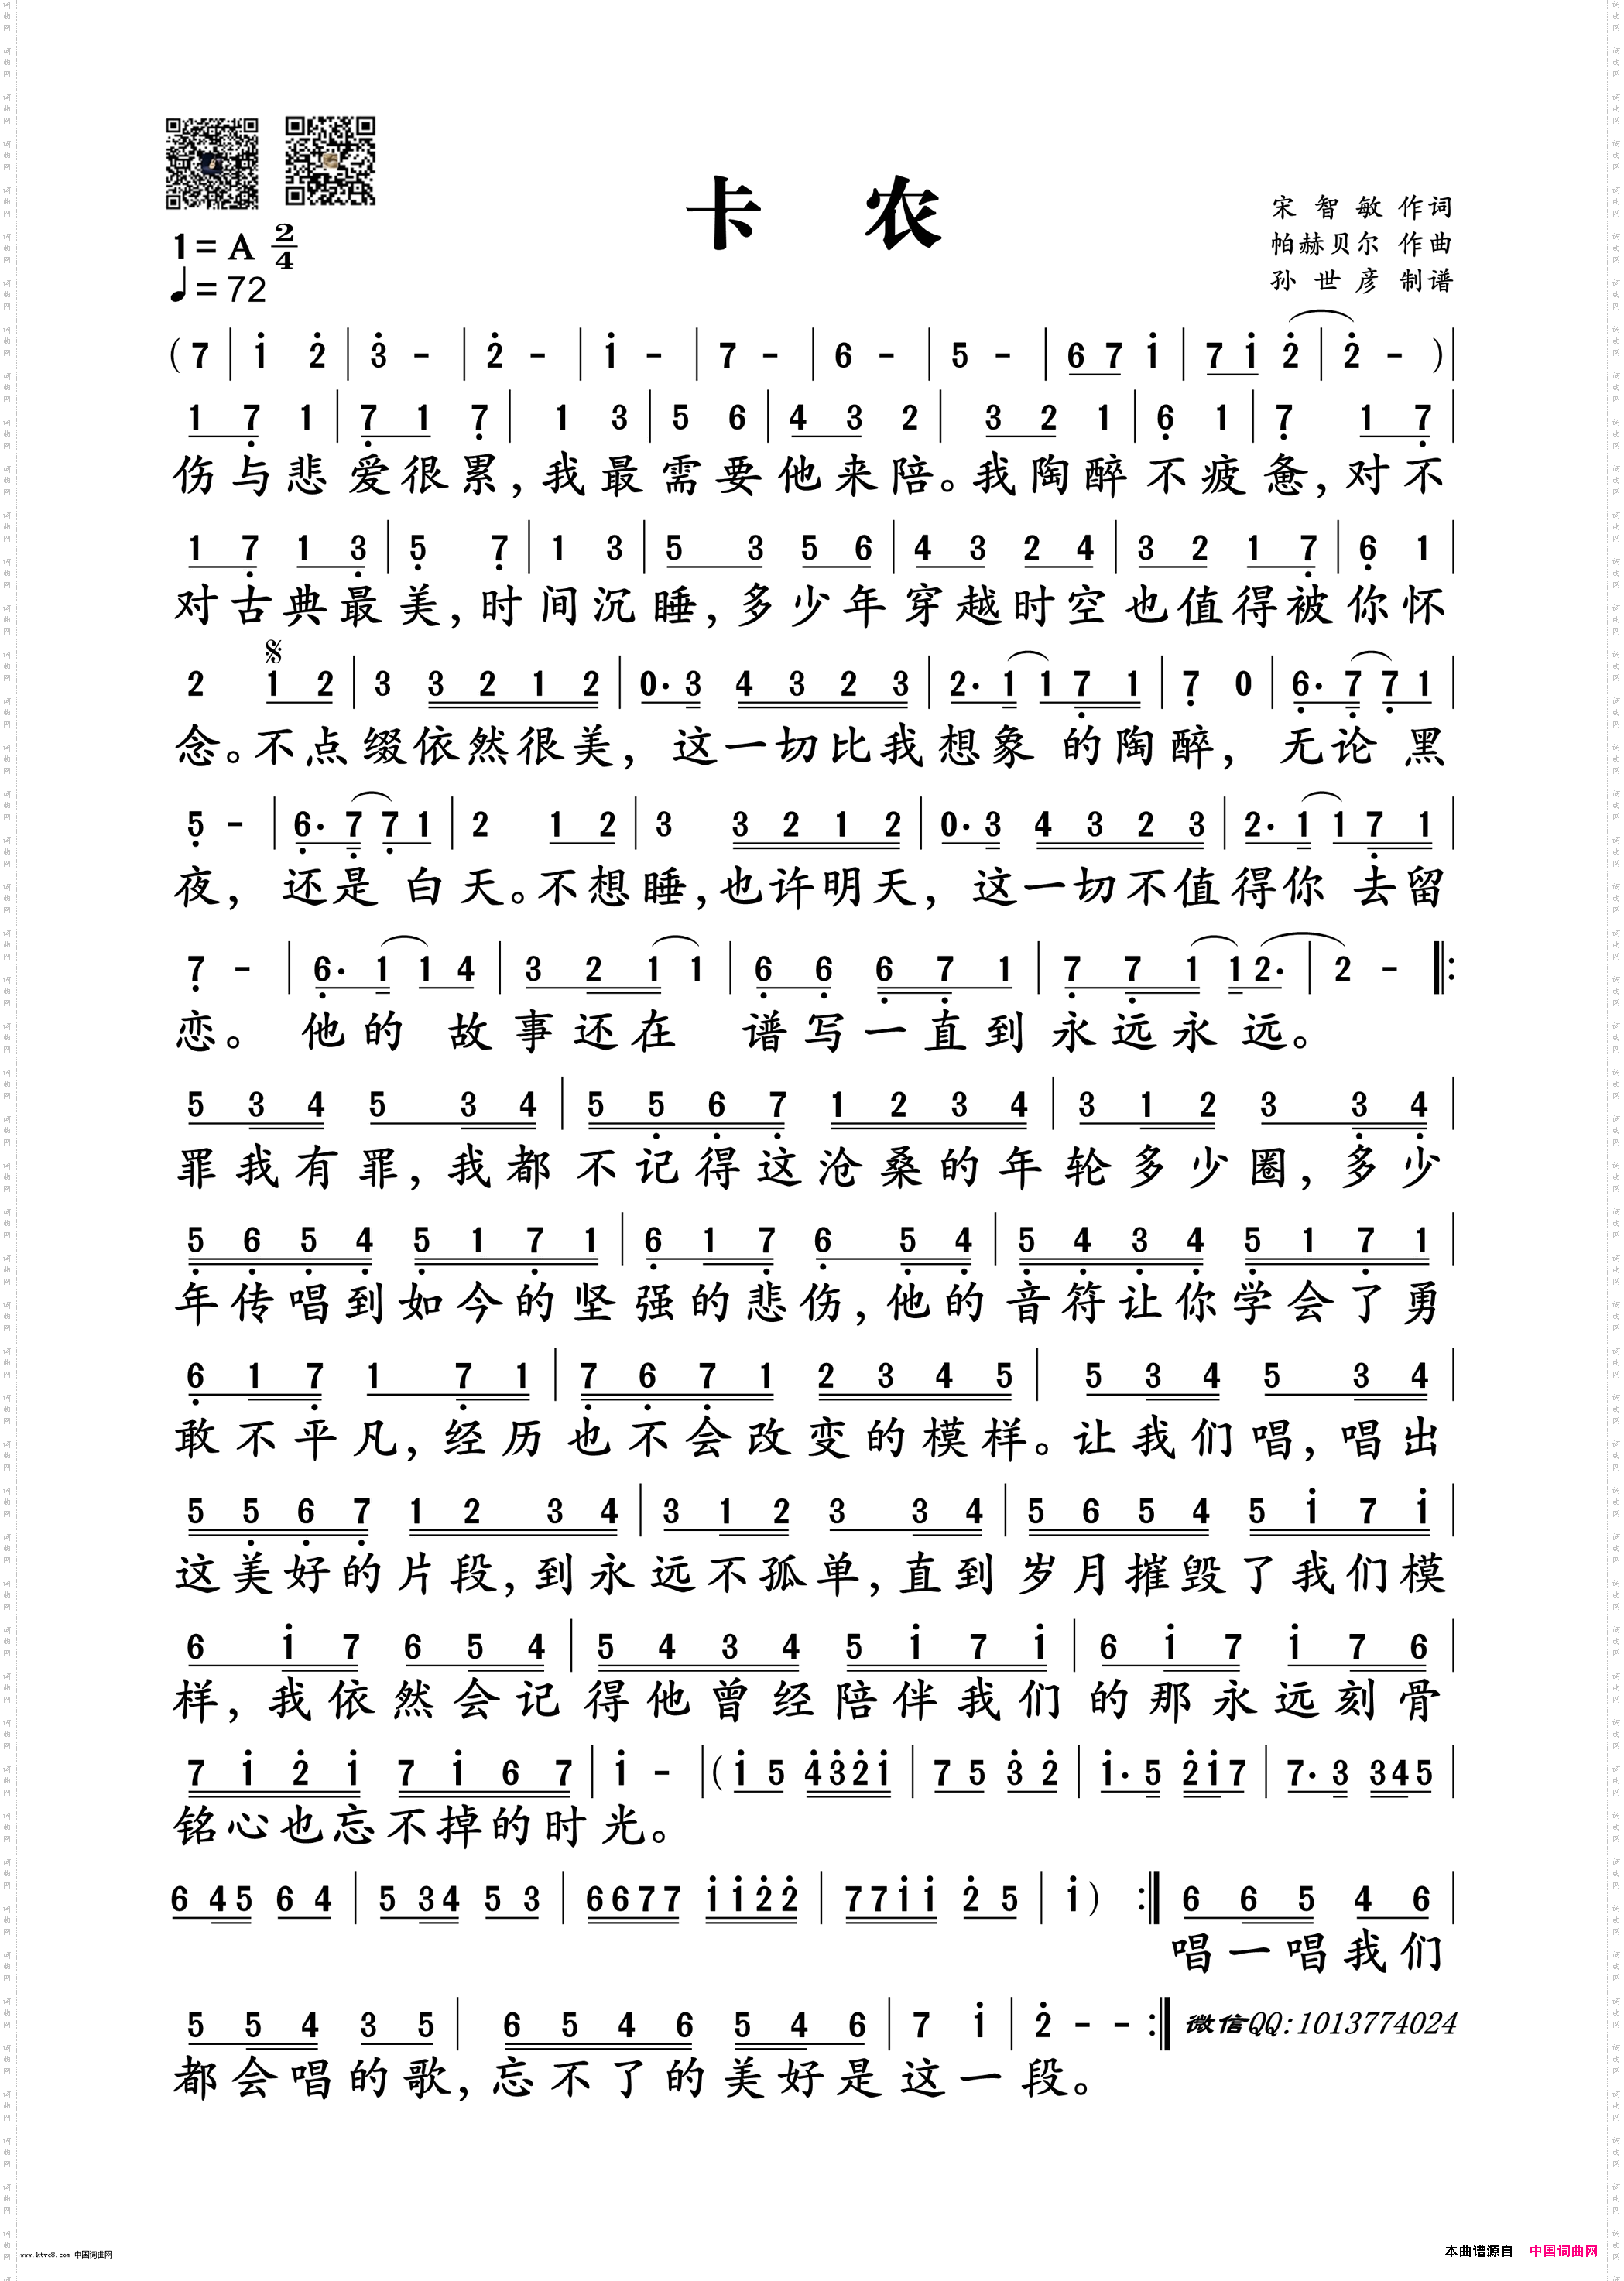 卡 农
宋 智 敏 作词
1= A 2/4
帕赫贝尔 作曲
♩= 72
孙 世 彦 制谱
( 7 | 1̇ 2̇ | 3̇ - | 2̇ - | 1̇ - | 7 - | 6 - | 5 - | 6 7 1̇ | 7 1̇ 2̇ | 2̇ - ) |
1 7̣ 1 | 7̣ 1 7̣ | 1 3 | 5 6 | 4 3 2 | 3 2 1 | 6̣ 1 | 7̣ 1 7̣ |
伤与悲爱很累,我最需要他来陪。我陶醉不疲惫,对不
1 7̣ 1 3̣ | 5̣ 7̣ | 1 3 | 5 3 5 6 | 4 3 2 4 | 3 2 1 7̣ | 6̣ 1 |
对古典最美,时间沉睡,多少年穿越时空也值得被你怀
2 𝄋 1 2 | 3 3 2 1 2 | 0· 3 4 3 2 3 | 2· 1 1 7̣ 1 | 7̣ 0 | 6̣· 7̣ 7̣ 1 |
念。不点缀依然很美,这一切比我想象 的陶醉,无论 黑
5̣ - | 6̣· 7̣ 7̣ 1 | 2 1 2 | 3 3 2 1 2 | 0· 3 4 3 2 3 | 2· 1 1 7̣ 1 |
夜,还是 白天。不想睡,也许明天,这一切不值得你 去留
7̣ - | 6̣· 1 1 4 | 3 2 1 1 | 6̣ 6̣ 6̣ 7̣ 1 | 7̣ 7̣ 1 1 2· | 2 - ‖:
恋。他的 故事还在 谱写一直到永远永 远。
5 3 4 5 3 4 | 5 5̣ 6̣ 7̣ 1 2 3 4 | 3 1 2 3 3̣ 4̣ |
罪我有罪,我都不记得这沧桑的年轮多少圈,多少
5̣ 6̣ 5̣ 4̣ 5̣ 1 7̣ 1 | 6̣ 1 7̣ 6̣ 5̣ 4̣ | 5̣ 4̣ 3̣ 4̣ 5̣ 1 7̣ 1 |
年传唱到如今的坚强的悲伤,他的音符让你学会了勇
6̣ 1 7̣ 1 7̣ 1 | 7̣ 6̣ 7̣ 1 2 3 4 5 | 5 3 4 5 3 4 |
敢不平凡,经历也不会改变的模样。让我们唱,唱出
5 5̣ 6̣ 7̣ 1 2 3 4 | 3 1 2 3 3 4 | 5 6 5 4 5 1̇ 7 1̇ |
这美好的片段,到永远不孤单,直到岁月摧毁了我们模
6 1̇ 7 6 5 4 | 5 4 3 4 5 1̇ 7 1̇ | 6 1̇ 7 1̇ 7 6 |
样,我依然会记得他曾经陪伴我们的那永远刻骨
7 1̇ 2̇ 1̇ 7 1̇ 6 7 | 1̇ - | ( 1̇ 5 4̇ 3̇ 2̇ 1̇ | 7 5 3̇ 2̇ | 1̇· 5 2̇ 1̇ 7 | 7· 3 3 4 5 |
铭心也忘不掉的时光。
6 4 5 6 4 | 5 3 4 5 3 | 6 6 7 7 1̇ 1̇ 2̇ 2̇ | 7 7 1̇ 1̇ 2̇ 5 | 1̇ ) :‖ 6 6 5 4 6 |
唱一唱我们
5 5 4 3 5 | 6 5 4 6 5 4 6 | 7 1̇ | 2̇ - - :‖ 微信QQ:1013774024
都会唱的歌,忘不了的美好是这一段。
www.ktvc8.com 中国词曲网
本曲谱源自 中国词曲网